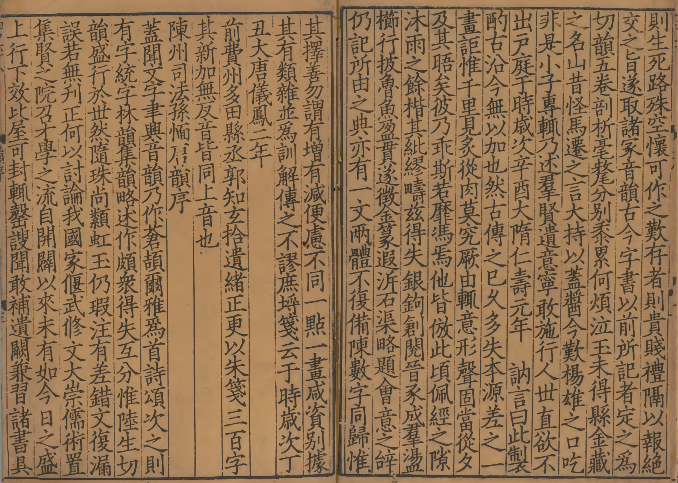 則生死路殊空懷可作之歎存者則貴賤禮隔以報絕
交之旨遂取諸家音韻古今字書以前所記者定之爲
切韻五卷剖析毫氂分別黍累何煩泣玉未得縣金藏
之名山昔怪馬遷之言大持以蓋醬今歎楊雄之口吃
非是小子專輒乃述羣賢遺意寧敢施行人世直欲不
出戸庭于時歳次辛酉大隋仁壽元年 訥言曰此製
酌古沿今無以加也然古傳之已久多失本源差之一
畫詎惟千里見多從肉莫究厥由輒意形聲固當從夕
及其晤矣彼乃乖斯若靡馮焉他皆倣此頃佩經之隙
沐雨之餘楷其紕繆疇兹得失銀鉤創閱晉豕成羣盪
櫛行披魯魚盈貫遂徵金篆遐泝石渠略題會意之辝
仍記所由之典亦有一文兩體不復備陳數字同歸惟
其擇善勿謂有增有減便慮不同一點一畫咸資別據
其有類雜並爲訓解傳之不謬庶埒箋云于時歳次丁
丑大唐儀鳳二年
前費州多田縣丞郭知玄拾遺緒正更以朱箋三百字
其新加無反音皆同上音也
陳州司法孫愐唐韻序
蓋聞文字聿興音韻乃作蒼頡爾雅爲首詩頌次之則
有字統字林韻集韻略述作頗衆得失互分惟陸生切
韻盛行於世然隨珠尚纇虹玉仍瑕注有差錯文復漏
誤若無刋正何以討論我國家偃武修文大崇儒術置
集賢之院召才學之流自開闢以來未有如今日之盛
上行下效比屋可封輒罄謏聞敢補遺闕兼習諸書具